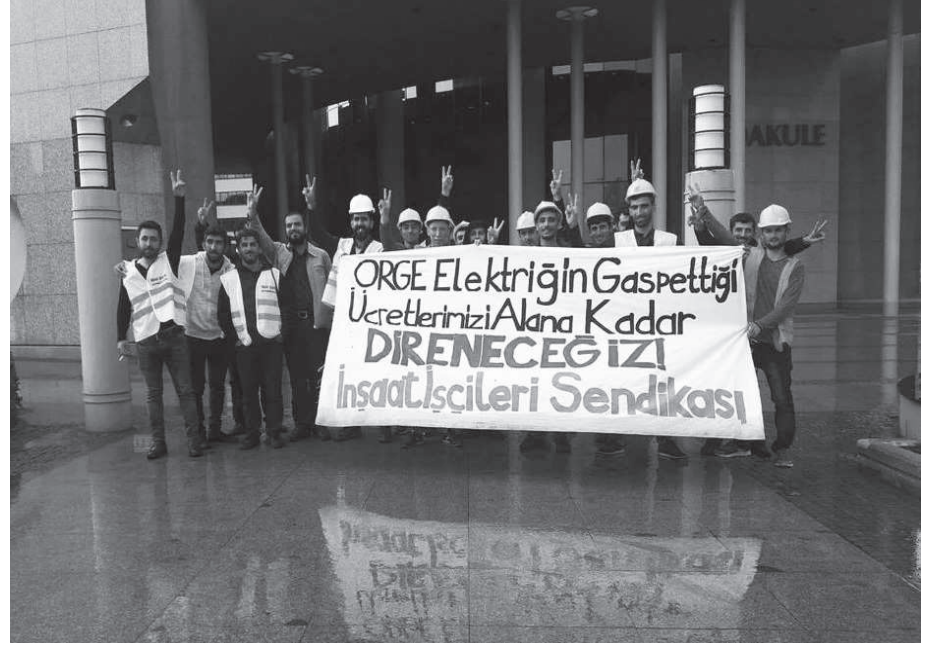 ORGE Elektriğin Gaspettiği
Ücretlerimizi Alana Kadar
DİRENECEĞİZ!
İnşaat İşçileri Sendikası
AKULE